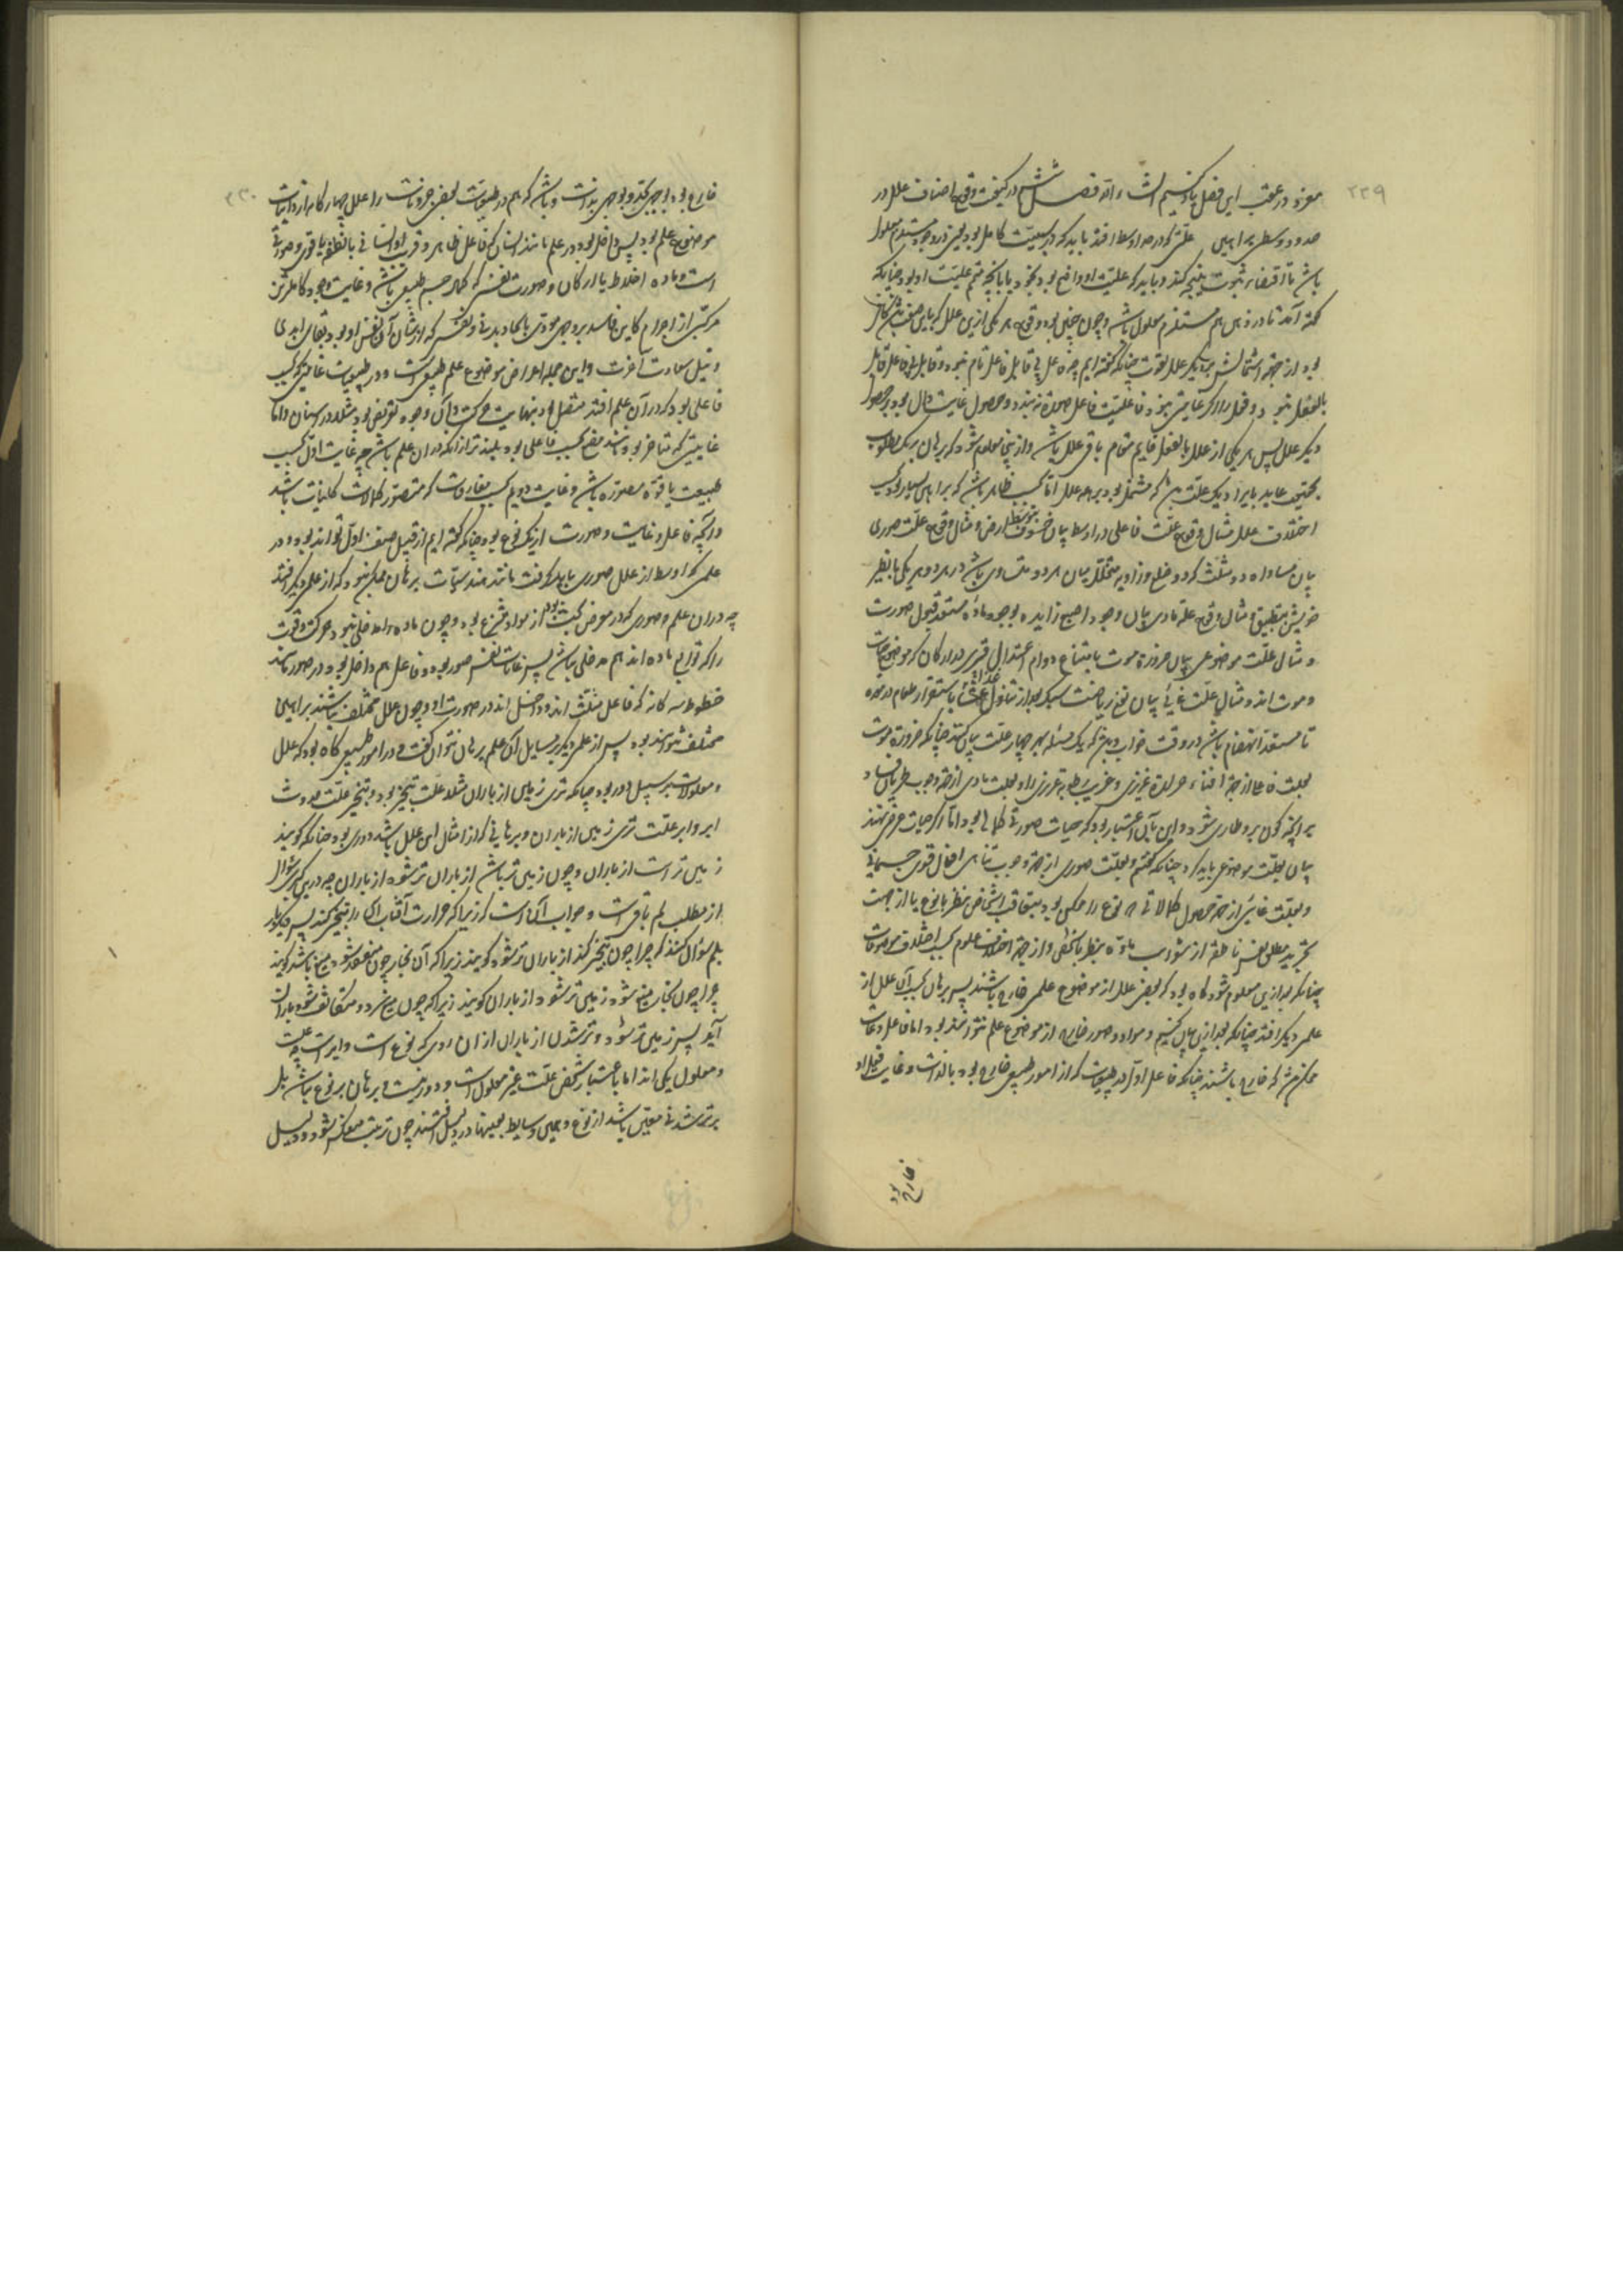 ۲۲۹
موزه در عقب این فصل یاد کنیم انشاء الله فصل ششم در کیفیت وقوع اصناف علل در
حدود وسطی براهین علتی که در حد اوسط افتد باید که در سببیت کامل بود یعنی در وجود مستلزم معلول
باشد تا اقتضاء ثبوت نتیجه کند و باید که علیت او واضح بود بخود یا بآنچه متمم علیت او بود چنانکه
گفته آمد تا در ذهن هم مستلزم معلول باشد و چون چنین بود وقوع هر یکی ازین علل که باین صفت باشد کافی
بود از جهة اشتمالش بر دیگر علل بقوت چنانکه گفته ایم چه فاعل بی قابل فاعل تام نبود و قابل بی فاعل قابل
بالفعل نبود و فعل را اگر غایتی نبود فاعلیت فاعل صورة نبندد و حصول غایت دال بود بر حصول
دیگر علل پس هر یکی از علل بالفعل قایم مقام باقی علل باشد و ازینجا معلوم شود که برهان بر یک مطلوب
بحقیقت عاید با یراد یک علت باشد که مشتمل بود بر همه علل اما بحسب ظاهر باشد که براهین بسیار بود بحسب
اختلاف علل مثال وقوع علت فاعلی در اوسط بیان خسوف بتوسط ارض و مثال وقوع علت صوری
بیان مساواة دو مثلث که دو ضلع و زاویه متخلل میان هر دو متساوی باشد در هر دو هر یکی با نظیر
خویش بتطبیق و مثال وقوع علة مادی بیان وجود اصبع زایده بوجود مادة مستعد قبول صورت
و مثال علت موضوعی بیان ضرورة موت بامتناع دوام اعتدال قسری در ارکان که موضوع حیات
و موت اند و مثال علت غائی بیان نفع ریاضت سبک بعد از تناول غذا باستقرار طعام در معده
تا مستعد انهضام باشد در وقت خواب و نیز که یک مسئله بهر چهار علت بیان کنند چنانکه ضرورة موت
بعلت فاعلی از جهة افناء حرارة غریزی و غریب رطوبة غریزی را و بعلت مادی از جهة وجوب طریان فساد
بر آنچه کون برو طاری شود و این بآن اعتبار بود که حیات صورتی کمالی بود اما اگر حیات عرض نهند
بیان بعلت موضوعی باید کرد چنانکه گفتیم و بعلت صوری از جهة وجوب تناهی افعال قوی جسمانی
و بعلت غایی از جهة حصول کمالاتی که نوع را ممکن بود بتعاقب اشخاص بنظر با نوع یا از جهت
تجرید مطلق نفس ناطقه از شوایب ماده بنظر با شخص و از جهة اختلاف علوم بحسب اختلاف موضوعات
چنانکه بعد ازین معلوم شود گاه بود که بعضی علل از موضوع علمی خارج باشند پس برهان بحسب آن علل از
علمی دیگر افتد چنانکه بعد ازین بیان کنیم و مواد و صور خارج از موضوع علم نتوانند بود اما فاعل و غایت
ممکن باشد که خارج باشند چنانکه فاعل اول در طبیعیات که از امور طبیعی خارج بود بالذات و غایت فعل او
خارج بود
۲۳۰
خارج بود بوجهی کلی و بوجهی بذات و باشد که هم در طبیعیات بعضی جزویات را علل چهارگانه از ذاتیات
موضوع علم بود پس داخل بود در علم مانند انسان که فاعل ظاهر و قریب او انسانی یا نطفه یا قوی و صورتی
است و ماده اخلاط یا ارکان و صورت نفسی که کمال جسم طبیعی باشد و غایت وجود کاملترین
مرکبی از اجرام کاین فاسد بر وجهی مودی باتحاد بدنی و نفسی که از شان آن نفس او بود بقای ابدی
و نیل سعادت آخرت و این جمله اعراض موضوع علم طبیعی است و در طبیعیات غایتی که بحسب
فاعلی بود که در آن علم افتد متصل بود بنهایت حرکت و آن وجود نوعی بود مثلا در انسان و اما
غایتی که متاخر بود باشد نفع بحسب فاعلی بود بلندتر از آنکه در آن علم باشد چه غایت اول بحسب
طبیعت یا قوة مصوره باشد و غایت دویم بحسب مفارقات که متصور کمالات کاینات باشد
و آنچه فاعل و غایت و صورت از یک نوع بود چنانکه گفته ایم از قبیل صنف اول تواند بود و در
علمی که اوسط از علل صوری باید گرفت مانند هندسیات برهان ممکن نبود که از علمی دیگر افتد
چه در آن علم صوری که در معرض بحث بود از مواد منتزع بود و چون ماده را مدخلی نبود حرکت و قوت
را که توابع ماده اند هم مدخلی نباشد پس غایات نفس صور بود و فاعل هم داخل بود در صور مانند
خطوط سه گانه که فاعل مثلث اند و داخل اند در صورت او و چون علل مختلف نباشند براهین
مختلف نتواند بود پس از علمی دیگر بر مسایل آن علم برهان نتوان گفت و در امور طبیعی گاه بود که علل
و معلولات بر سبیل دور بود چنانکه تری زمین از باران مثلا علت تبخیر بود و تبخیر علت حدوث
ابر و ابر علت تری زمین از باران و برهانی که از امثال این علل باشد دوری بود چنانکه گویند
زمین تر است از باران و چون زمین تر باشد از باران تر شود از باران چه درین کبری سوال
از مطلب لم باقی است و جواب آن است که زیرا که حرارت آفتاب آن را تبخیر کند پس دیگر بار
بلم سوال کنند که چرا چون تبخیر کند از باران تر شود گویند زیرا که آن بخار چون منعقد شود میغ باشد گویند
چرا چون بخار میغ شود زمین تر شود از باران گویند زیرا که چون میغ سرد و متکاثف شود باران
آید پس زمین تر شود و تر شدن از باران از آن روی که نوع است و ابر است چه علت
و معلول یکی اند اما باعتبار شخص علت غیر معلول است و دور نیست و برهان بر نوع نباشد بل
بر تر شدنی معین باشد از نوع و همین وسایط بعینها در دلیل افتند چون ترتیب منعکس شود و دلیل